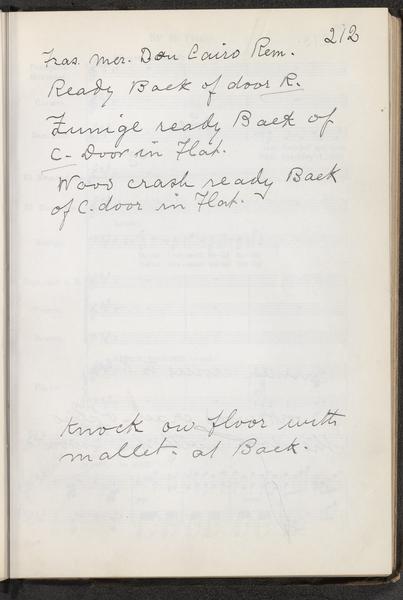 212
Fras. Mer. Dan Cairo Rem.
Ready Back of door R.
Zunige ready Back of
C- Door in Flat.
Wood crash ready Back
of C. door in Flat.
Knock on floor with
mallet. at Back.